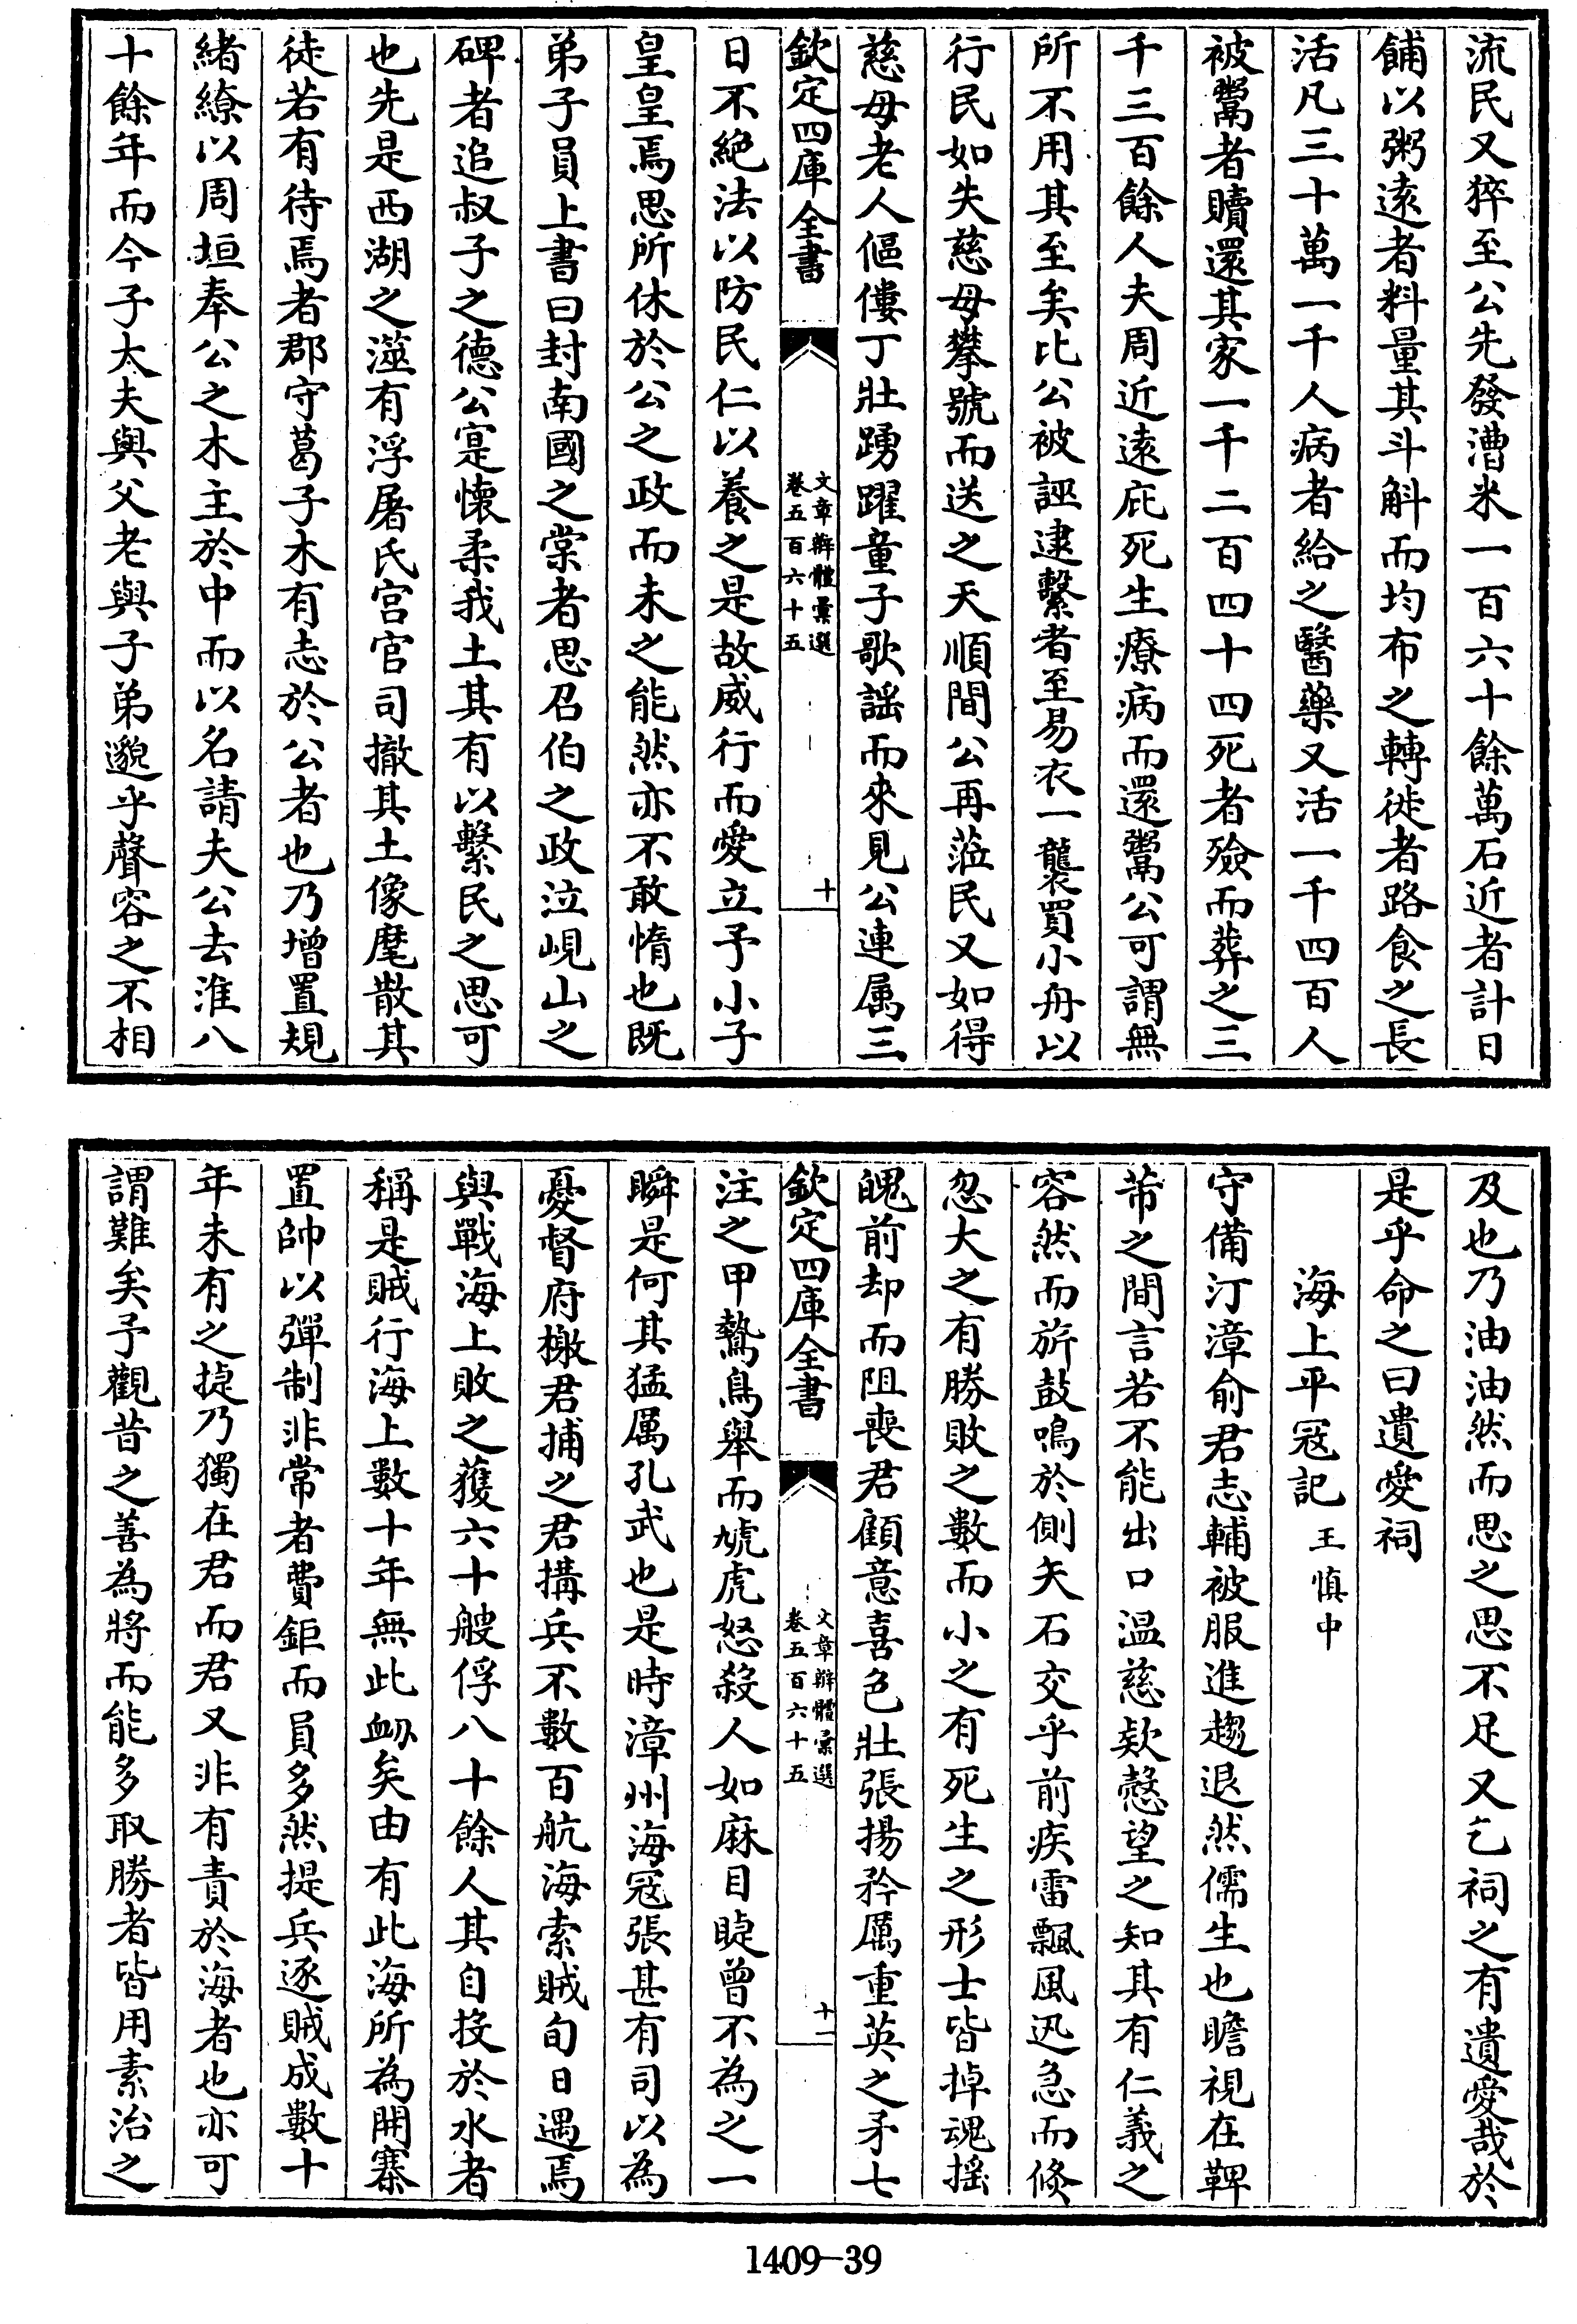 流民又猝至公先發漕米一百六十餘萬石近者計日
餔以粥遠者料量其斗斛而均布之轉徙者路食之長
活凡三十萬一千人病者給之醫藥又活一千四百人
被鬻者贖還其家一千二百四十四死者殮而葬之三
千三百餘人夫周近遠庇死生療病而還鬻公可謂無
所不用其至矣比公被誣逮繫者至易衣一襲買小舟以
行民如失慈母攀號而送之天順間公再蒞民又如得
慈母老人傴僂丁壯踴躍童子歌謡而來見公連属三
欽定四庫全書
文章辨體彙選
卷五百六十五
十
日不絶法以防民仁以養之是故威行而愛立予小子
皇皇焉思所休於公之政而未之能然亦不敢惰也既
弟子員上書曰封南國之棠者思召伯之政泣峴山之
碑者追叔子之德公寔懷柔我土其有以繫民之思可
也先是西湖之澨有浮屠氏宫官司撤其土像麾散其
徒若有待焉者郡守葛子木有志於公者也乃增置規
緒繚以周垣奉公之木主於中而以名請夫公去淮八
十餘年而今子大夫與父老與子弟邈乎聲容之不相
及也乃油油然而思之思不足又乞祠之有遺愛哉於
是乎命之曰遺愛祠
海上平冦記 王慎中
守備汀漳俞君志輔被服進趨退然儒生也瞻視在鞞
芾之間言若不能出口温慈欵愨望之知其有仁義之
容然而旂鼓鳴於側矢石交乎前疾雷飄風迅急而倏
忽大之有勝敗之數而小之有死生之形士皆掉魂揺
魄前却而阻喪君顧意喜色壯張揚矜厲重英之矛七
欽定四庫全書
文章辨體彙選
卷五百六十五
十一
注之甲鷙鳥舉而虓虎怒殺人如麻目睫曾不為之一
瞬是何其猛厲孔武也是時漳州海冦張甚有司以為
憂督府檄君捕之君搆兵不數百航海索賊旬日遇焉
與戰海上敗之獲六十艘俘八十餘人其自投於水者
稱是賊行海上數十年無此衂矣由有此海所為開寨
置帥以彈制非常者費鉅而員多然提兵逐賊成數十
年未有之捷乃獨在君而君又非有責於海者也亦可
謂難矣予觀昔之善為將而能多取勝者皆用素治之
1409-39